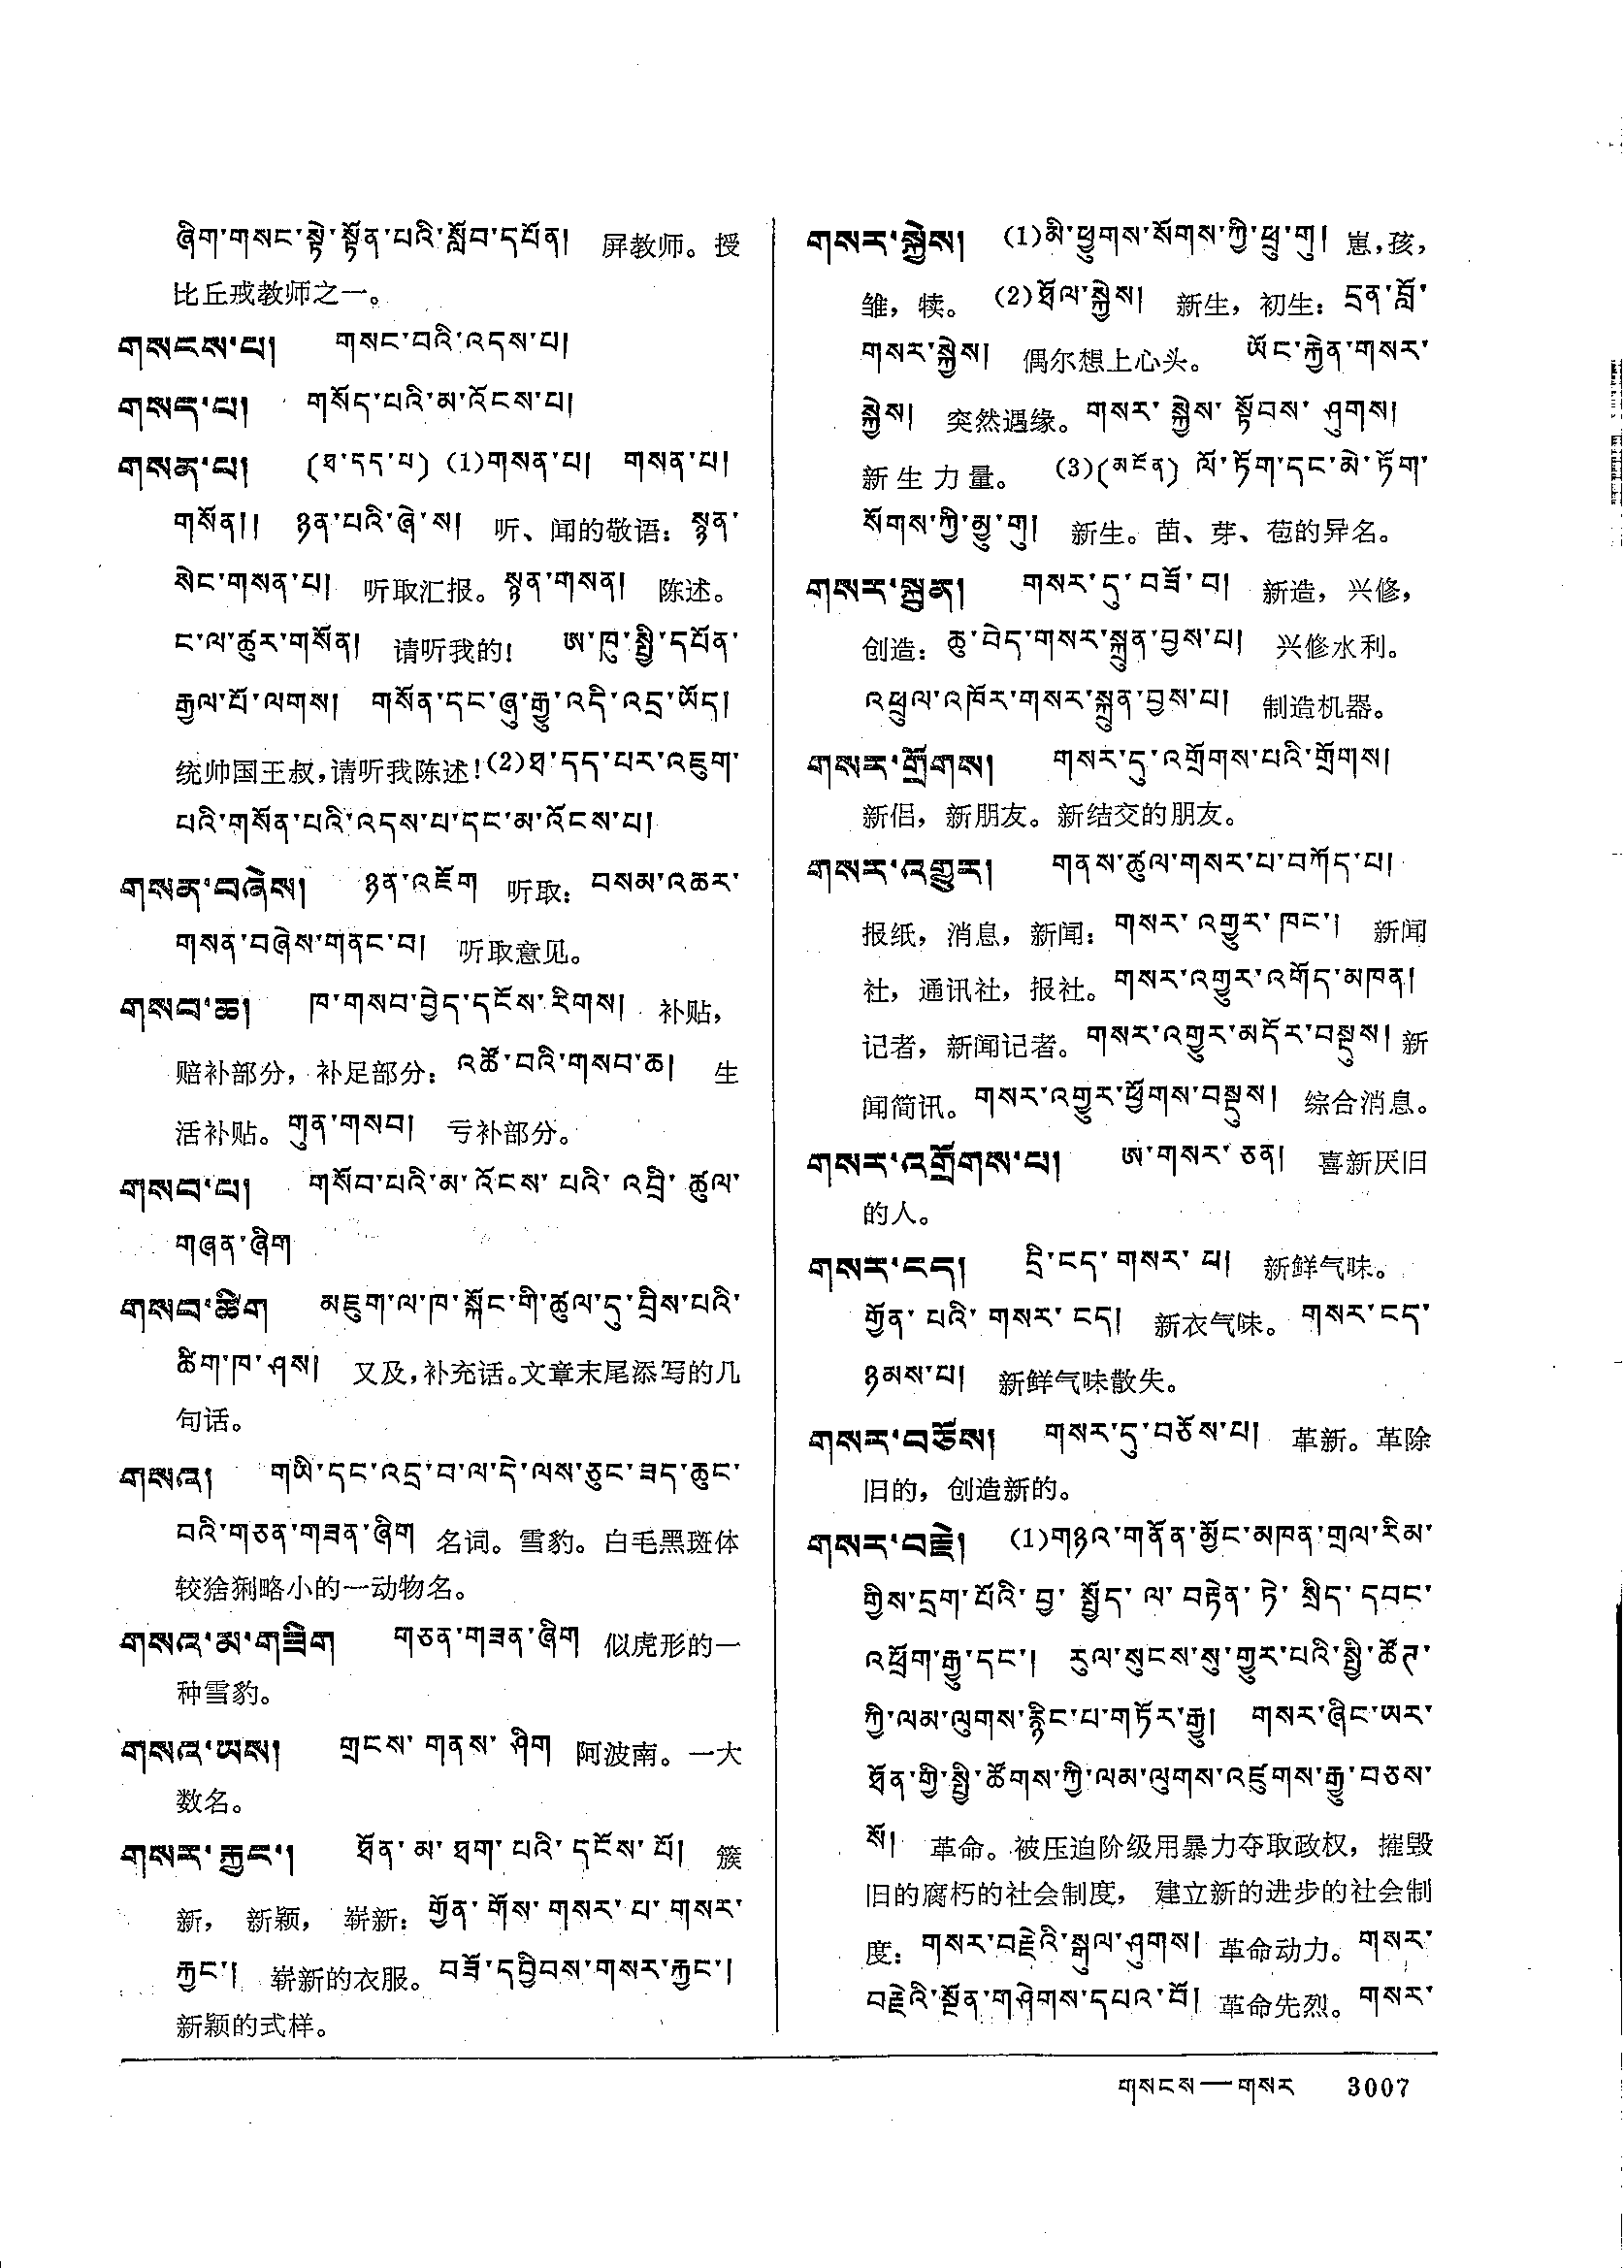 ཞིག་གསང་སྟེ་སྟོན་པའི་སློབ་དཔོན། 屏教师。授
比丘戒教师之一。
གསངས་པ། གསང་བའི་འདས་པ།
གསད་པ། གསོད་པའི་མ་འོངས་པ།
གསན་པ། (ཐ་དད་པ) (1)གསན་པ། གསན་པ།
གསོན།། ཉན་པའི་ཞེ་ས། 听、闻的敬语：སྙན་
སེང་གསན་པ། 听取汇报。སྙན་གསན། 陈述。
ང་ལ་ཚུར་གསོན། 请听我的！ ཨ་ཁུ་སྤྱི་དཔོན་
རྒྱལ་པོ་ལགས། གསོན་དང་ཞུ་རྒྱུ་འདི་འདྲ་ཡོད།
统帅国王叔，请听我陈述！(2)ཐ་དད་པར་འཇུག་
པའི་གསོན་པའི་འདས་པ་དང་མ་འོངས་པ།
གསན་བཞེས། ཉན་འཇོག 听取：བསམ་འཆར་
གསན་བཞེས་གནང་བ། 听取意见。
གསབ་ཆ། ཁ་གསབ་བྱེད་དངོས་རིགས། 补贴，
赔补部分，补足部分：འཚོ་བའི་གསབ་ཆ། 生
活补贴。གུན་གསབ། 亏补部分。
གསབ་པ། གསོབ་པའི་མ་འོངས་པའི་འབྲི་ཚུལ་
གཞན་ཞིག
གསབ་ཚིག མཇུག་ལ་ཁ་སྐོང་གི་ཚུལ་དུ་བྲིས་པའི་
ཚིག་ཁ་ཤས། 又及，补充话。文章末尾添写的几
句话。
གསའ། གཡི་དང་འདྲ་བ་ལ་དེ་ལས་ཅུང་ཟད་ཆུང་
བའི་གཅན་གཟན་ཞིག 名词。雪豹。白毛黑斑体
较猞猁略小的一动物名。
གསའ་མ་གཟིག གཅན་གཟན་ཞིག 似虎形的一
种雪豹。
གསའ་ཡས། གྲངས་གནས་ཤིག 阿波南。一大
数名。
གསར་རྐྱང་། ཐོན་མ་ཐག་པའི་དངོས་པོ། 簇
新， 新颖， 崭新：གྱོན་གོས་གསར་པ་གསར་
རྐྱང་། 崭新的衣服。བཟོ་དབྱིབས་གསར་རྐྱང་།
新颖的式样。
གསར་སྐྱེས། (1)མི་ཕྱུགས་སོགས་ཀྱི་ཕྲུ་གུ། 崽，孩，
雏，犊。(2)ཐོལ་སྐྱེས། 新生，初生：དྲན་བློ་
གསར་སྐྱེས། 偶尔想上心头。 ཡོང་རྐྱེན་གསར་
སྐྱེས། 突然遇缘。གསར་སྐྱེས་སྟོབས་ཤུགས།
新生力量。 (3)(མངོན) ལོ་ཏོག་དང་མེ་ཏོག་
སོགས་ཀྱི་མྱུ་གུ། 新生。苗、芽、苞的异名。
གསར་སྐྲུན། གསར་དུ་བཟོ་བ། 新造，兴修，
创造：ཆུ་བེད་གསར་སྐྲུན་བྱས་པ། 兴修水利。
འཕྲུལ་འཁོར་གསར་སྐྲུན་བྱས་པ། 制造机器。
གསར་གྲོགས། གསར་དུ་འགྲོགས་པའི་གྲོགས།
新侣，新朋友。新结交的朋友。
གསར་འགྱུར། གནས་ཚུལ་གསར་པ་བཀོད་པ།
报纸，消息，新闻：གསར་འགྱུར་ཁང་། 新闻
社，通讯社，报社。གསར་འགྱུར་འགོད་མཁན།
记者，新闻记者。གསར་འགྱུར་མདོར་བསྡུས། 新
闻简讯。གསར་འགྱུར་ཕྱོགས་བསྡུས། 综合消息。
གསར་འགྲོགས་པ། ཨ་གསར་ཅན། 喜新厌旧
的人。
གསར་ངད། དྲི་ངད་གསར་པ། 新鲜气味。
གྱོན་པའི་གསར་ངད། 新衣气味。གསར་ངད་
ཉམས་པ། 新鲜气味散失。
གསར་བཅོས། གསར་དུ་བཅོས་པ། 革新。革除
旧的，创造新的。
གསར་བརྗེ། (1)གཉའ་གནོན་མྱོང་མཁན་གྲལ་རིམ་
གྱིས་དྲག་པོའི་བྱ་སྤྱོད་ལ་བརྟེན་ཏེ་སྲིད་དབང་
འཕྲོག་རྒྱུ་དང་། རུལ་སུངས་སུ་གྱུར་པའི་སྤྱི་ཚོཊ་
ཀྱི་ལམ་ལུགས་རྙིང་པ་གཏོར་རྒྱུ། གསར་ཞིང་ཡར་
ཐོན་གྱི་སྤྱི་ཚོགས་ཀྱི་ལམ་ལུགས་འཛུགས་རྒྱུ་བཅས་
སོ། 革命。被压迫阶级用暴力夺取政权，摧毁
旧的腐朽的社会制度， 建立新的进步的社会制
度：གསར་བརྗེའི་སྒུལ་ཤུགས། 革命动力。གསར་
བརྗེའི་སྔོན་གཤེགས་དཔའ་བོ། 革命先烈。གསར་
གསངས—གསར 3007